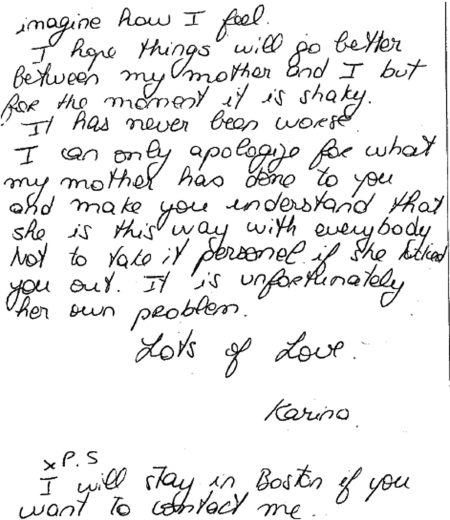 imagine how I feel.
I hope things will go better
between my mother and I but
for the moment it is shaky.
It has never been worse
I can only apologize for what
my mother has done to you
and make you understand that
she is this way with everybody
Not to take it personel if she kicked
you out. It is unfortunately
her own problem.
Lots of Love.
Karina
x P.S
I will stay in Boston if you
want to contact me.